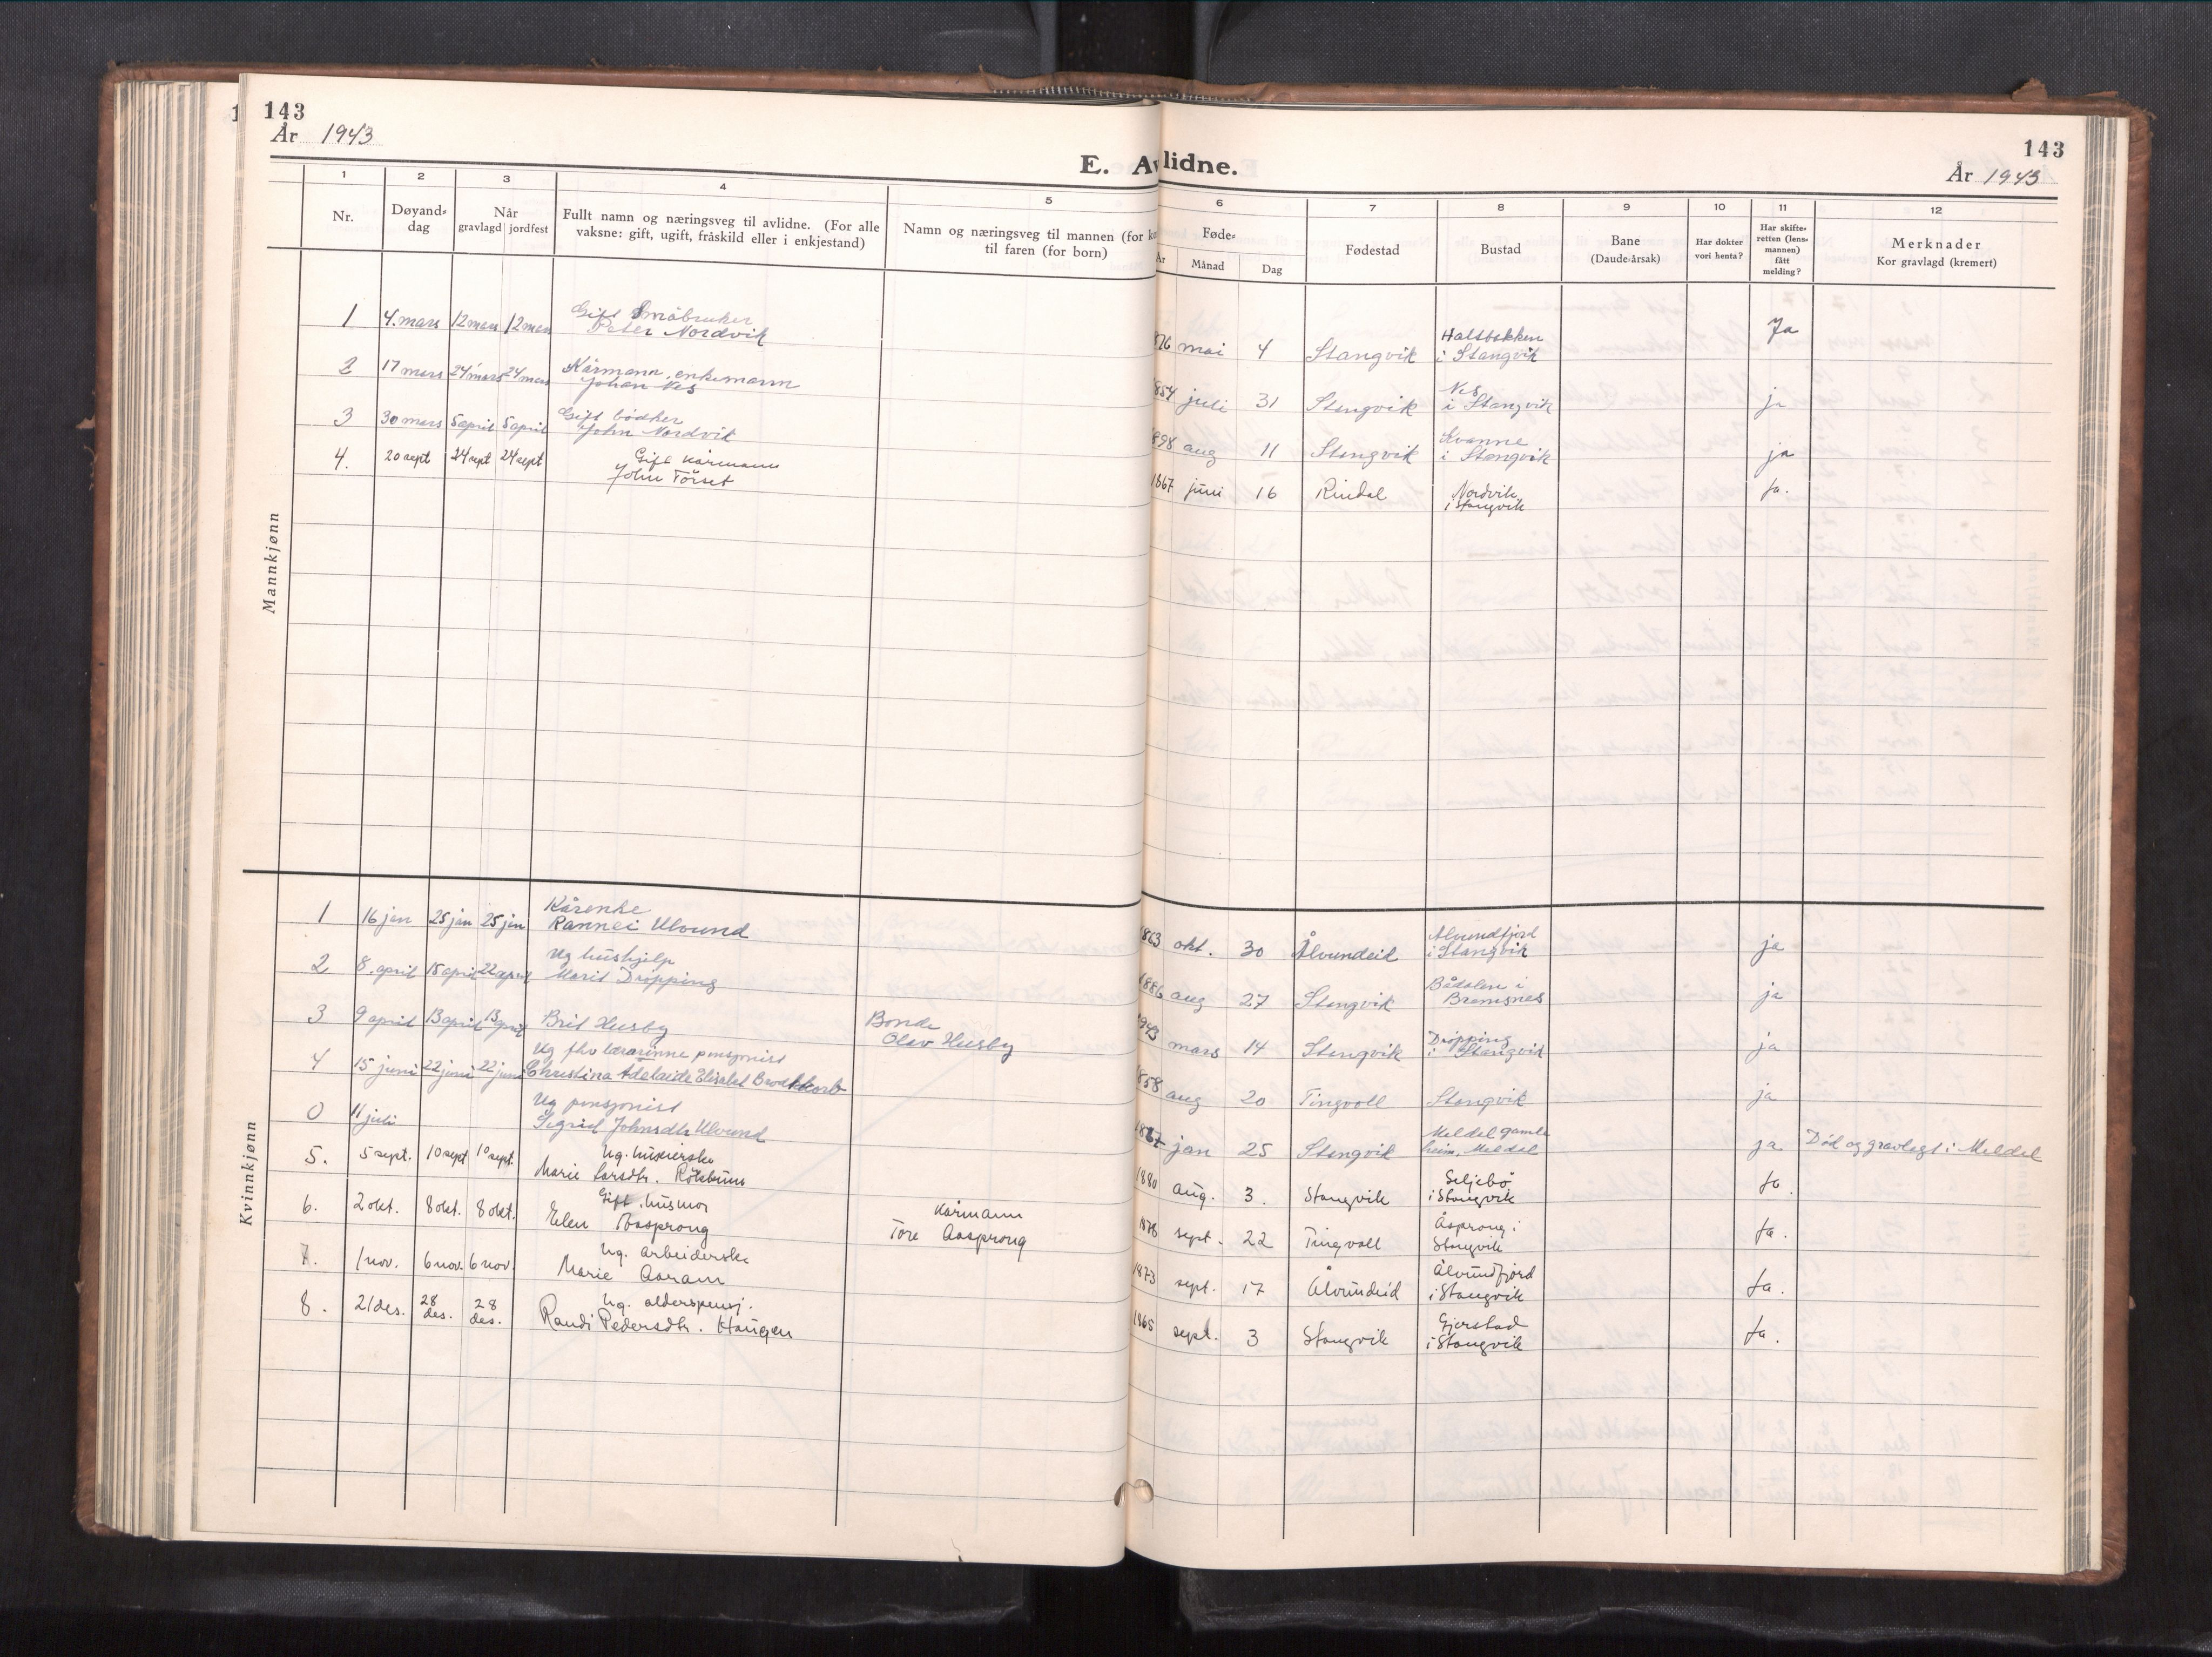 143
År 1943
E. Avlidne.
143
År 1943
1 2 3 4 5 6 7 8 9 10 11 12
Nr.
Døyand-
dag
Når
gravlagd jordfest
Fullt namn og næringsveg til avlidne. (For alle
vaksne: gift, ugift, fråskild eller i enkjestand)
Namn og næringsveg til mannen (for k
til faren (for born)
Føde-
År Månad Dag
Fødestad
Bustad
Bane
(Daude-årsak)
Har dokter
vori henta?
Har skifte-
retten (lens-
mannen)
fått
melding?
Merknader
Kor gravlagd (kremert)
Mannkjønn
1 4. mars 12 mars 12 mars Gift Småbruker
Peter Nordvik
876 mai 4 Stangvik Haltbakken
i Stangvik Ja
2 17 mars 24 mars 24 mars Kårmann, enkemann
Johan Nes
854 juli 31 Stangvik Nes
i Stangvik ja
3 30 mars 5 april 5 april Gift bødker
John Nordvik
898 aug 11 Stangvik Kvanne
i Stangvik ja
4. 20 sept 24 sept 24 sept Gift kårmann
John Törset
1867 juni 16 Rindal Nordvik
i Stangvik Ja.
Kvinnkjønn
1 16 jan 25 jan 25 jan Kårenke
Rannei Ulvund
863 okt. 30 Ålvundeid Ålvundfjord
i Stangvik ja
2 8. april 15 april 22 april Ug hushjelp
Marit Dröpping
1886 aug 27 Stangvik Bådalen i
Bremsnes ja
3 9 april 13 april 13 april Brit Husby
Bonde
Olav Husby
1943 mars 14 Stangvik Dröpping
i Stangvik ja
4 15 juni 22 juni 22 juni Ug fhv lærarinne pensjonist
Christina Adelaide Elisabet Brodtkorb
1858 aug 20 Tingvoll Stangvik ja
0 11 juli Ug pensjonist
Sigrid Johnsdtr Ulvund
jan 25 Stangvik Meldal gamle
heim, Meldal ja Död og gravlagt i Meldal
5. 5 sept. 10 sept 10 sept. Ug.
Marie Larsdtr.
1880 aug. 3. Stangvik Seljebö
i Stangvik Ja.
6. 2 okt. 8 okt. 8 okt. Gift, husmor
Elen Aasprong
Kårmann
Tore Aasprong
1878 sept. 22 Tingvoll Åsprong i
Stangvik Ja.
7. 1 nov. 6 nov. 6 nov. Ug. arbeiderske
Marie Aaram
1873 sept. 17 Ålvundeid Ålvundfjord
i Stangvik Ja.
8. 21 des. 28
des. 28
des. Ug. alderspensj.
Randi Pedersdtr. Haugen
1865 sept. 3 Stangvik Gjerstad
i Stangvik Ja.